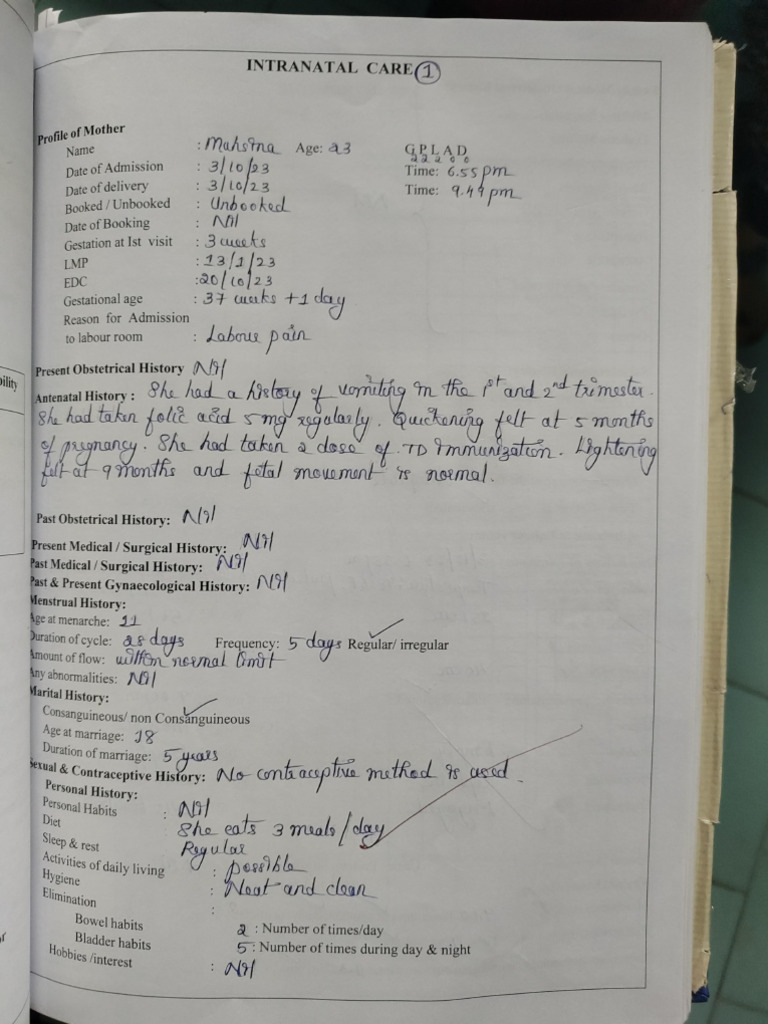 INTRANATAL CARE 1
Profile of Mother
Name : Mahsina Age: 23 G P L A D
2 2 2 0 0
Date of Admission : 3/10/23 Time: 6.55 pm
Date of delivery : 3/10/23 Time: 9.49 pm
Booked / Unbooked : Unbooked
Date of Booking : Nil
Gestation at Ist visit : 3 weeks
LMP : 13/1/23
EDC : 20/10/23
Gestational age : 37 weeks + 1 day
Reason for Admission
to labour room : Labour pain
Present Obstetrical History Nil
Antenatal History : She had a history of vomiting in the 1st and 2nd trimester.
She had taken folic acid 5 mg regularly. Quickening felt at 5 months
of pregnancy. She had taken 2 dose of TD immunization. Lightening
felt at 9 months and fetal movement is normal.
Past Obstetrical History: Nil
Present Medical / Surgical History: Nil
Past Medical / Surgical History: Nil
Past & Present Gynaecological History: Nil
Menstrual History:
Age at menarche: 11
Duration of cycle: 28 days Frequency: 5 days Regular/ irregular
Amount of flow: within normal limit
Any abnormalities: Nil
Marital History:
Consanguineous/ non Consanguineous
Age at marriage: 18
Duration of marriage: 5 years
Sexual & Contraceptive History: No contraceptive method is used.
Personal History:
Personal Habits : Nil
Diet She eats 3 meals/day
Sleep & rest Regular
Activities of daily living : possible
Hygiene : Neat and clean
Elimination :
Bowel habits 2 : Number of times/day
Bladder habits 5 : Number of times during day & night
Hobbies /interest : Nil